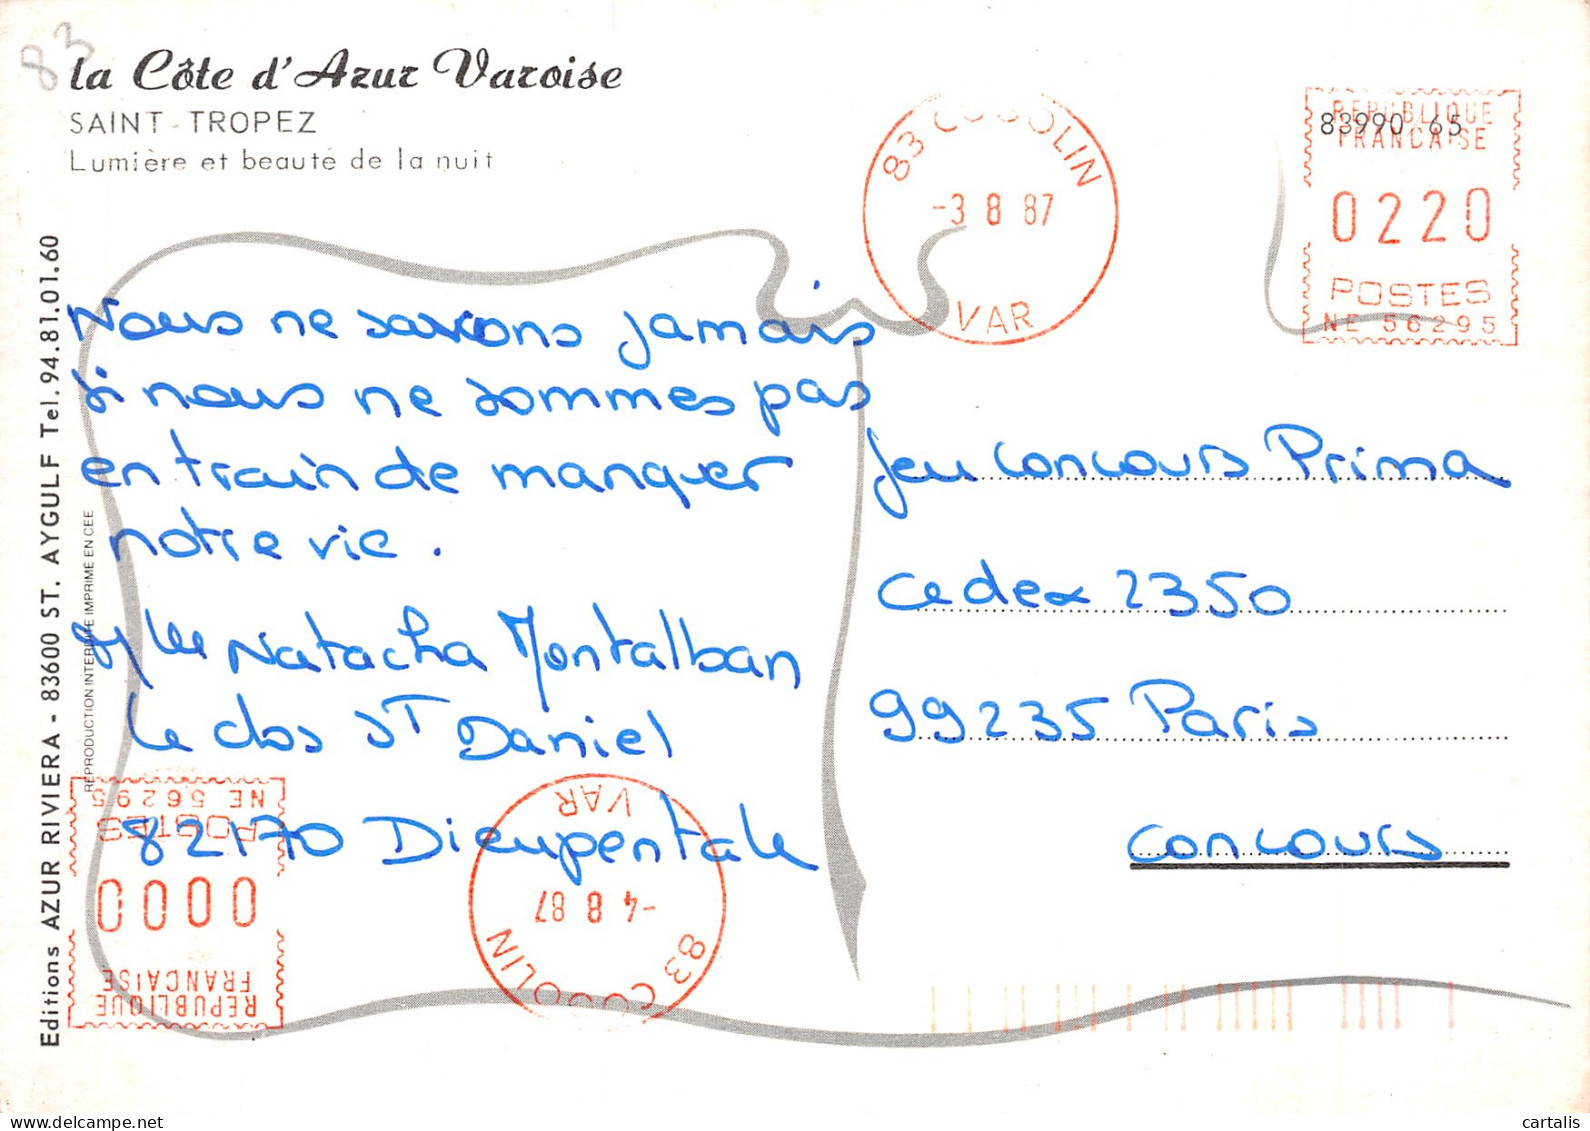 83
la Côte d'Azur Varoise
SAINT-TROPEZ
Lumière et beauté de la nuit
83 COGOLIN
-3 8 87
VAR
REPUBLIQUE
FRANCAISE
83990 65
0220
POSTES
NE 56295
Nous ne savons jamais
si nous ne sommes pas
en train de manquer
notre vie.
Mlle Natacha Montalban
Le clos ST Daniel
82170 Dieupentale
Jeu concours Prima
Cedex 2350
99235 Paris
concours
Editions AZUR RIVIERA - 83600 ST. AYGULF Tel. 94.81.01.60
REPRODUCTION INTERDITE IMPRIME EN CEE
REPUBLIQUE
FRANCAISE
0000
POSTES
NE 56295
83 COGOLIN
-4 8 87
VAR
cartalis